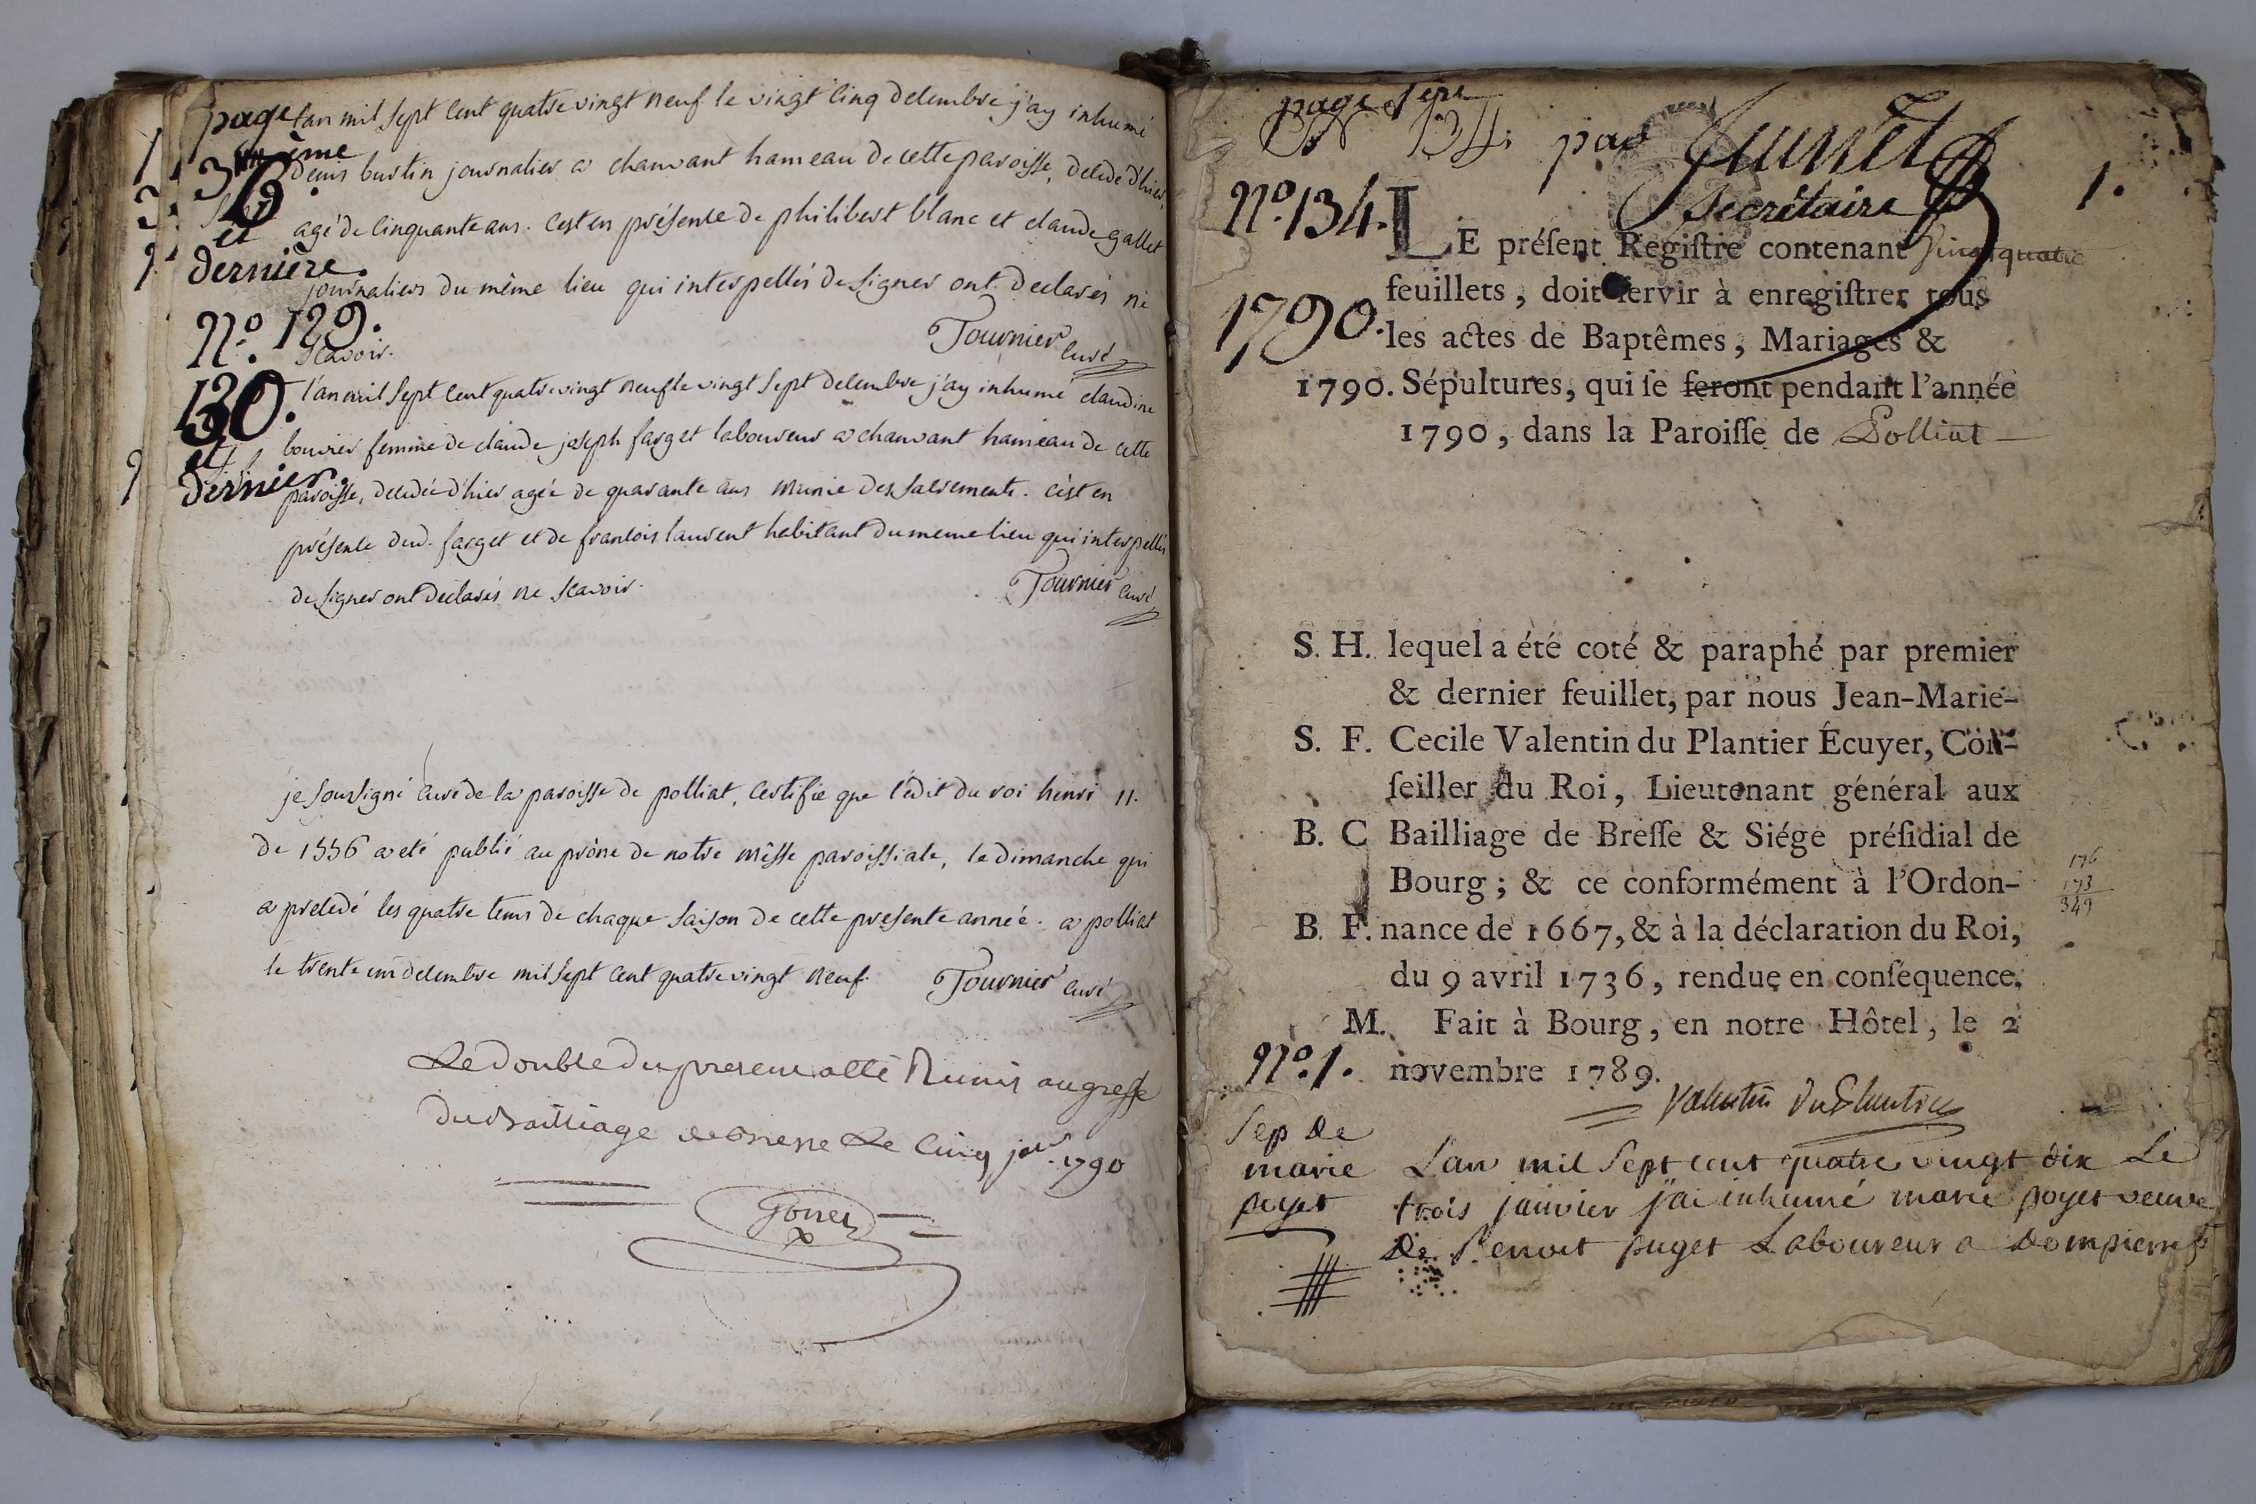 page
36ème
et
dernière.
N.º 129.
130.
et
dernier.
l'an mil sept cent quatre vingt neuf le vingt cinq decembre j'ay inhumé
denis bustin journalier a chanvant hameau de cette paroisse, decedé d'hier,
agé de cinquante ans. c'est en présence de philibert blanc et claude gallet
journaliers du même lieu qui interpellés de signer ont declarés ne
scavoir.
Tournier curé
l'an mil sept cent quatre vingt neuf le vingt sept decembre j'ay inhumé claudine
bouvier femme de claude joseph farget laboureur a chanvant hameau de cette
paroisse, decedée d'hier agée de quarante ans munie des sacrements. c'est en
présence dud. farget et de francois laurent habitant du meme lieu qui interpellés
de signer ont declarés ne scavoir.
Tournier curé
je soussigné curé de la paroisse de polliat, certifie que l'édit du roi henri 11.
de 1556 a eté publié au prône de notre mêsse paroissiale, le dimanche qui
a precedé les quatre tems de chaque saison de cette presente année. a polliat
le trente un decembre mil sept cent quatre vingt neuf.
Tournier curé
Le double du present a été Remis au greffe
du Bailliage de Bresse Le cinq jer. 1790
page 1ère
134. par
secrétaire
1.
N.º 134.
1790.
LE préſent Regiſtre contenant
feuillets, doit ſervir à enregiſtrer tous
les actes de Baptêmes, Mariages &
1790. Sépultures, qui ſe feront pendant l'année
1790, dans la Paroiſſe de Polliat
S. H. lequel a été coté & paraphé par premier
& dernier feuillet, par nous Jean-Marie-
S. F. Cecile Valentin du Plantier Écuyer, Con-
ſeiller du Roi, Lieutenant général aux
B. C Bailliage de Breſſe & Siége préſidial de
Bourg ; & ce conformément à l'Ordon-
B. F. nance de 1667, & à la déclaration du Roi,
du 9 avril 1736, rendue en conſéquence.
M. Fait à Bourg, en notre Hôtel, le 2
novembre 1789.
176
173
349
Valentin DuPlantier
N.º 1.
Sep de
marie
poyet
L'an mil sept cent quatre vingt dix Le
trois janvier j'ai inhumé marie poyet veuve
De Benoit puget Laboureur a Dompierre